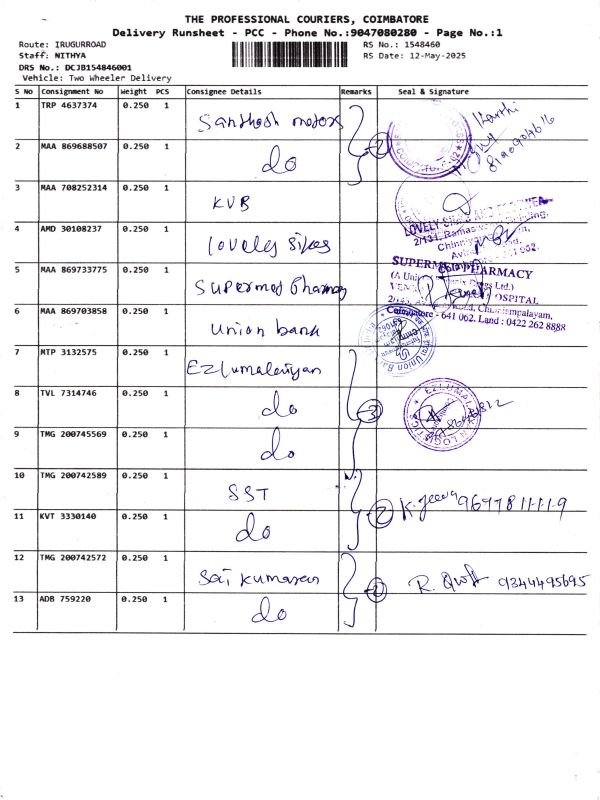 THE PROFESSIONAL COURIERS, COIMBATORE
Delivery Runsheet - PCC - Phone No.:9047080280 - Page No.:1
Route: IRUGURROAD
Staff: NITHYA
DRS No.: DCJB154846001
Vehicle: Two Wheeler Delivery
RS No.: 1548460
RS Date: 12-May-2025
S No Consignment No Weight PCS Consignee Details Remarks Seal & Signature
1 TRP 4637374 0.250 1 Santhosh motors
2 MAA 869688507 0.250 1 do 2
Karthi
3 MAA 708252314 0.250 1 KVB
4 AMD 30108237 0.250 1 lovely Silks
5 MAA 869733775 0.250 1 Supermed Pharmacy
SUPERMED PHARMACY
HOSPITAL
Coimbatore - 641 062. Land : 0422 262 8888
6 MAA 869703858 0.250 1 Union bank
7 MTP 3132575 0.250 1 Ezlumaleniyan
8 TVL 7314746 0.250 1 do 3
9 TMG 200745569 0.250 1 do
10 TMG 200742589 0.250 1 SST
11 KVT 3330140 0.250 1 do 2 K. Jeeva
12 TMG 200742572 0.250 1 Sai Kumaran
13 ADB 759220 0.250 1 do 2 R. 9344495695